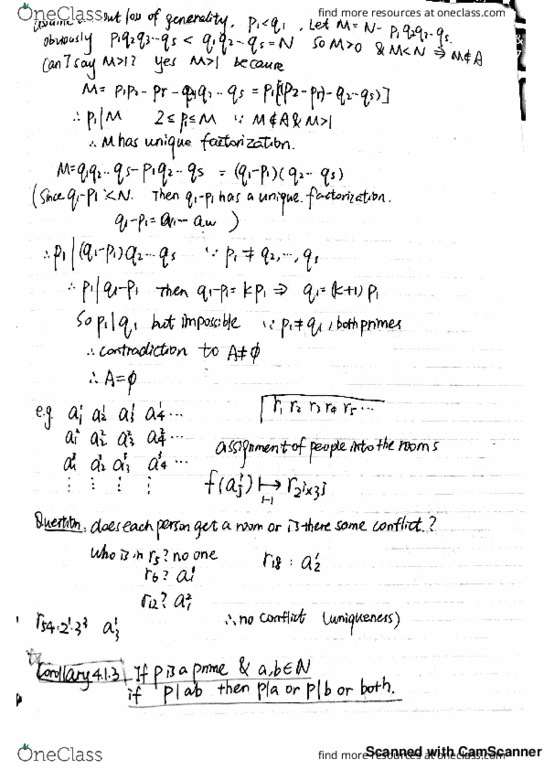 OneClass
find more resources at oneclass.com
assume without loss of generality, p₁<q₁. Let M=N-p₁q₂q₃…qs.
obviously p₁q₂q₃…qs < q₁q₂…qs=N so M>0 & M<N ⇒ M∉A
Can I say M>1? yes M>1 because
M= p₁p₂…pr - p₁q₂…qs = p₁[(p₂…pr)-q₂…qs)]
∴ p₁|M 2≤p₁≤M ∵ M∉A & M>1
∴ M has unique factorization.
M=q₁q₂…qs-p₁q₂…qs = (q₁-p₁)(q₂…qs)
(Since q₁-p₁<N. Then q₁-p₁ has a unique factorization.
q₁-p₁=a₁…aw )
∴p₁|(q₁-p₁)q₂…qs ∵ p₁≠q₂,…,qs
∴ p₁|q₁-p₁ Then q₁-p₁=kp₁ ⇒ q₁=(k+1)p₁
So p₁|q₁ but impossible ∵ p₁≠q₁, both primes
∴ contradiction to A≠∅
∴ A=∅
e.g a₁¹ a₂¹ a₃¹ a₄¹ … r₁ r₂ r₃ r₄ r₅ …
a₁² a₂² a₃² a₄² …
a₁³ a₂³ a₃³ a₄³ … assignment of people into the rooms
⋮ ⋮ ⋮ ⋮ f(aⱼⁱ) ↦ r2ⁱ×3ʲ
1-1
Question: does each person get a room or is there some conflict?
Who is in r₅? no one r₁₈: a₂¹
r₆? a₁¹
r₁₂? a₁²
r₅₄=2¹·3³ a₃¹ ∴ no conflict (uniqueness)
Corollary 4.1.3 If p is a prime & a,b∈N
if p|ab then p|a or p|b or both.
OneClass
find more resources at oneclass.com
Scanned with CamScanner